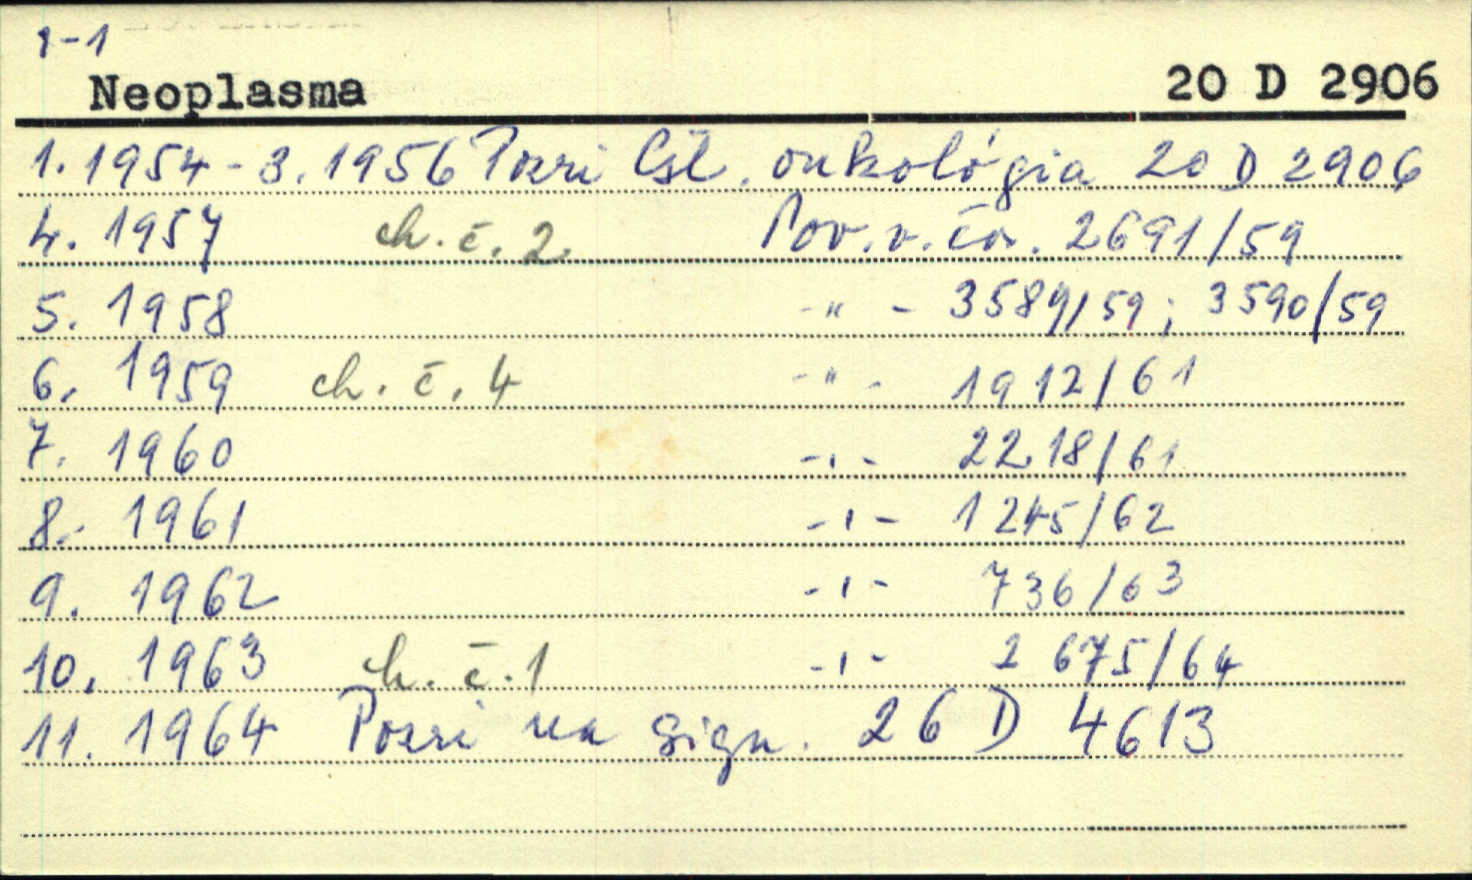 1-1
Neoplasma 20 D 2906
1. 1954 - 3. 1956 Pozri Čsl. onkológia 20 D 2906
4. 1957 ch. č. 2 Pov. v. čas. 2691/59
5. 1958 -"- 3589/59; 3590/59
6. 1959 ch. č. 4 -"- 1912/61
7. 1960 -"- 2218/61
8. 1961 -"- 1245/62
9. 1962 -"- 736/63
10. 1963 ch. č. 1 -"- 2675/64
11. 1964 Pozri na sign. 26 D 4613